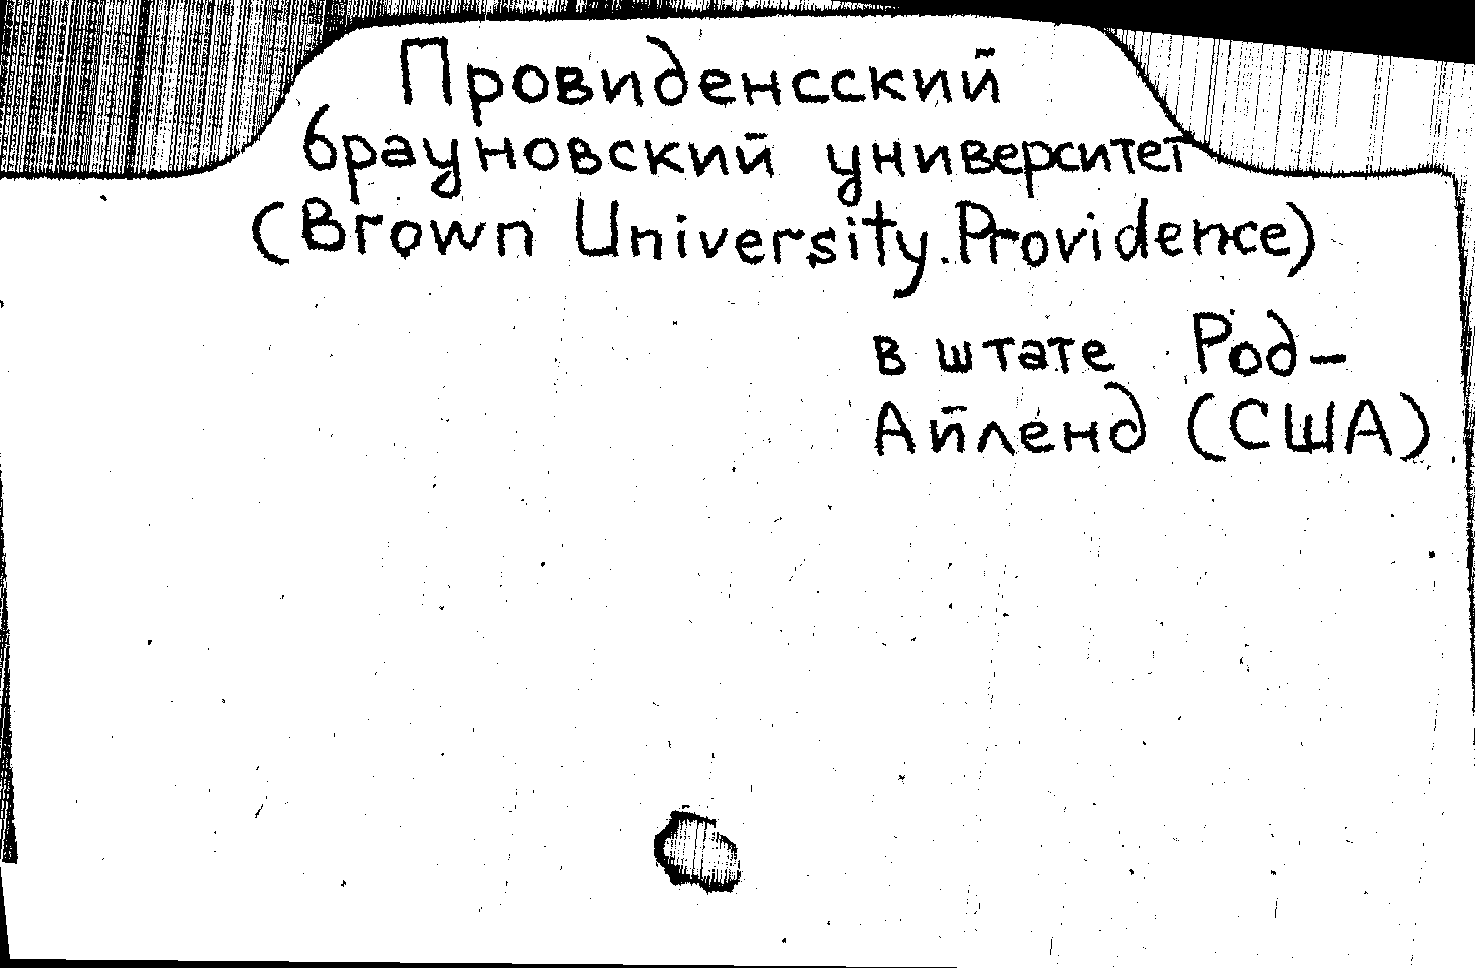 Провиденсский
брауновский университет
(Brown University. Providence)
в штате Род-
Айленд (США)